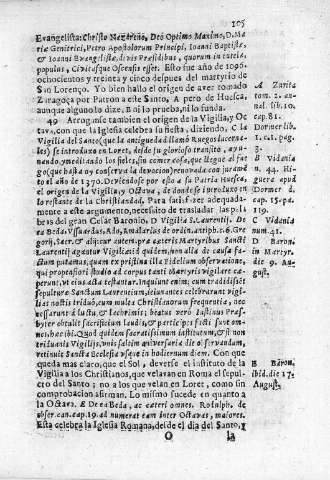 105
Evangelista: Christo Nazareno, Deo Optimo Maximo, D. Ma
riæ Genitrici, Petro Apostolorum Principi, Ioanni Baptistæ,
& Ioanni Evangelistæ, divis Præsidibus, quorum in tutela,
Populus, Civitasque Oscensis esset. Esto fue año de 1096.
ochocientos y treinta y cinco despues del martyrio de
San Lorenço. Yo bien hallo el origen de aver tomado
Zaragoça por Patron a este Santo, A pero de Huesca,
aunque alguno lo dize, B ni lo prueba, ni lo funda.
49 Arroganse tambien el origen de la Vigilia, y Oc
tava, con que la Iglesia celebra su fiesta, diziendo, C la
Vigilia del Santo (que la antiguedad llamò Ruegos lacerna-
les) se introduxo en Loret, desde su glorioso transito, ayu-
nando, y meditando los fieles, sin comer cosa, que llegue al fue
go (que hasta oy conserva la devocion) renovada con juramẽ
to el año de 1370. Deviendose por esso à la Patria Huesca,
el origen de la Vigilia, y Octava, de donde se introduxo en
lo restante de la Christiandad. Para satisfazer adequada-
mente a este argumento, necesito de trasladar las pala
bras del gran Cesar Baronio. D Vigilia S. Laurentij. De
ea Beda. Vssuardus, Ado, Amalarius de ordin. antiph. c. 6. Gre
gorij, Sacr. & alij: cur autem præ cæteris Martyribus Sancti
Laurentij agantur Vigiliæ: id quidem, non alia de causa fa-
ctum putamus, quam ex pristina illa fidelium observatione,
qui propensiori studio ad corpus tanti Martyris vigilare cæ-
perunt, vt eius acta testantur. Inquiunt enim: cum tradidisset
sepulturæ Sanctum Laurentium, ieiunantes celebrarunt vigi-
lias noctis triduò, cum multa Christianorum frequentia, nec
cessarunt à luctu, & lachrimis; beatus verò Iustinus Pres-
byter obtulit sacrificium laudis, & participes facti sunt om-
nes: hæc ibi. Quod quidem sacratissimum institutum, & si non
triduanis Vigilijs, vnis saltim aniversaria die observandum,
retinuit Sancta Ecclesia vsque in hodiernum diem. Con que
queda mas claro, que el Sol, deverse el instituto de la
Vigilia a los Christianos, que velavan en Roma el sepul-
cro del Santo; no a los que velan en Loret, como sin
comprobacion afirman. Lo mismo sucede en quanto a
la Octava. E De ea Beda, ac cæteri omnes. Rodulph. de
obser can. cap. 19. ad numerat eam inter Octavas, maiores.
Esta celebra la Iglesia Romana, desde el dia del Santo,
O
la
A Zurita
tom. 2. an-
nal. lib. 10.
cap. 81.
Dormer lib.
1. c. 1. pag.
3.
B Vidania
n. 44. Hi-
guera apud
Dormer d.
cap. 15. pa.
119.
C Vidania
num. 41.
D Baron.
in Martyr.
die 9. Au-
gust.
B Báron.
ibid. die 17.
August.